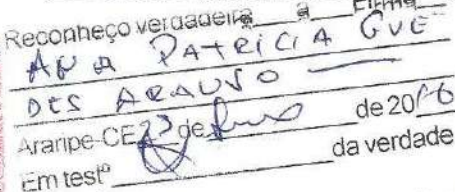 Reconheço verdadeira a Firma
ANA PATRICIA GUE
DES ARAUJO
Araripe-CE 23 de de 2016
Em testº da verdade